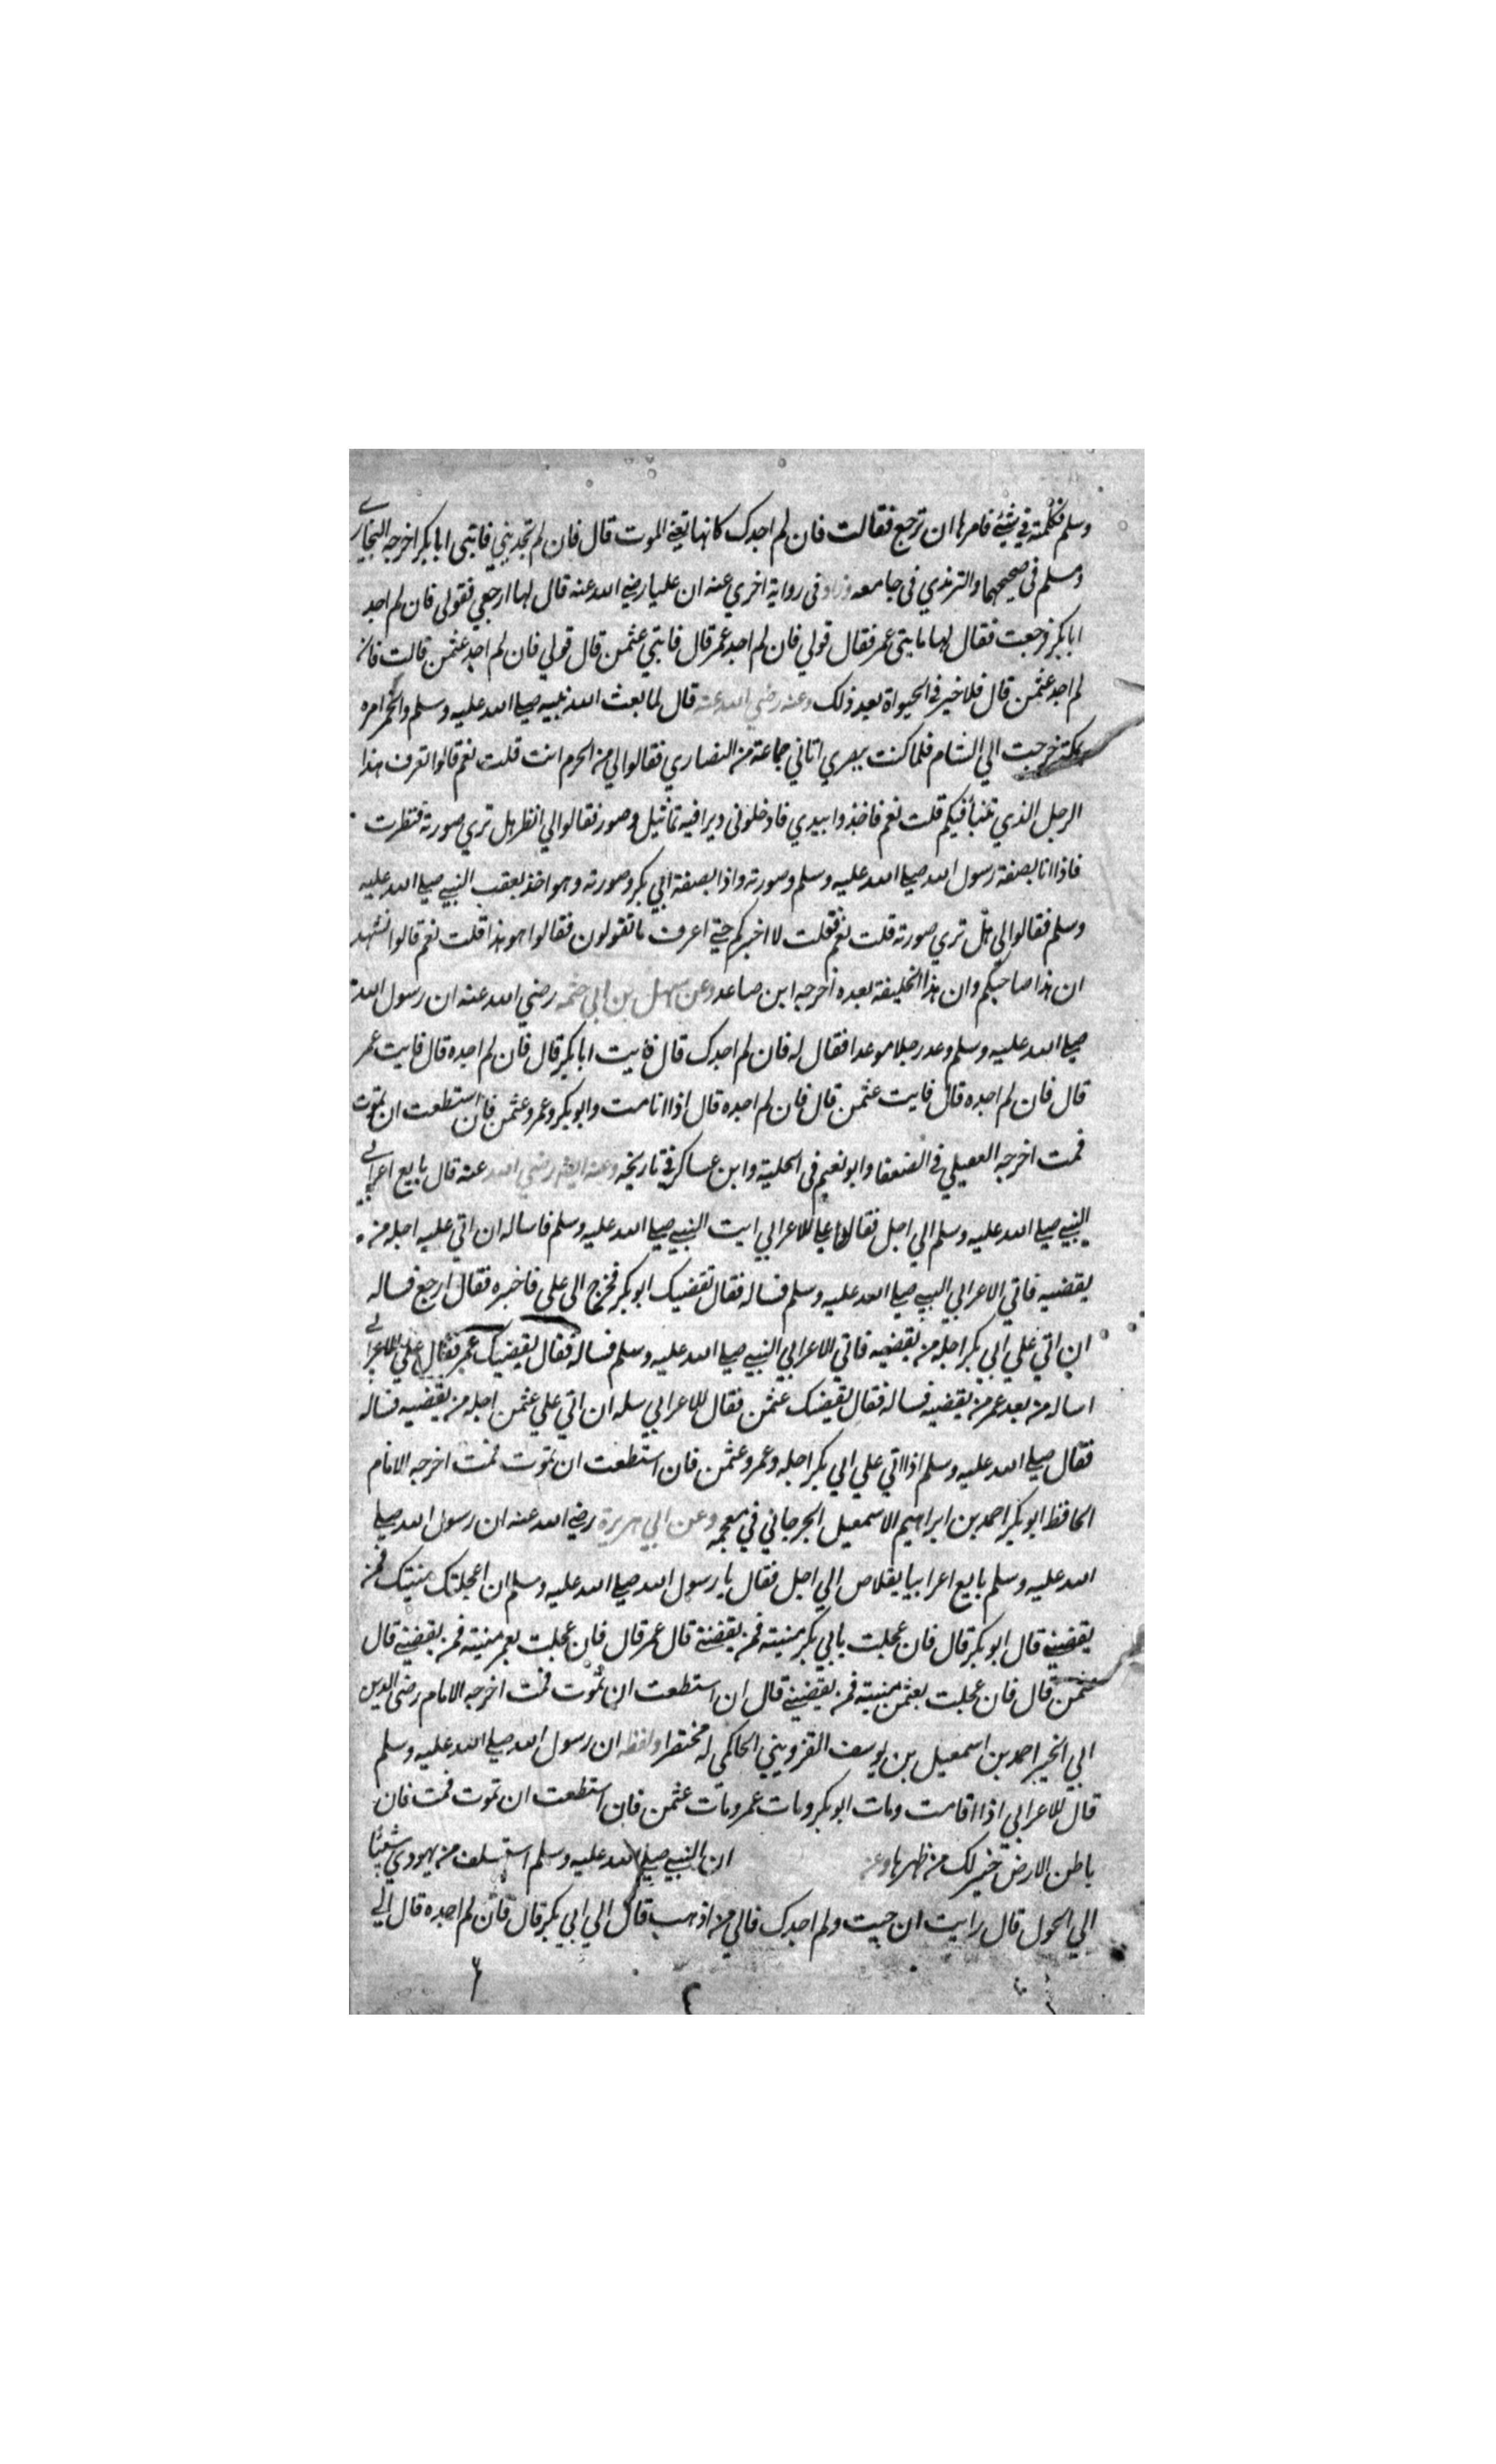 وسلم فكلمته في شيئ فامرها ان ترجع فقالت فان لم اجدك كانها تعني الموت قال فان لم تجديني فاتي ابا بكر اخرجه البخاري
ومسلم في صحيحهما والترمذي في جامعه وزاد في رواية اخري عنه ان عليا رضي الله عنه قال لها ارجعي فقولي فان لم اجد
ابا بكر فرجعت فقال لها فايتي عمر فقال قولي فان لم اجد عمر قال فايتي عثمن قال قولي فان لم اجد عثمن قالت فان
لم اجد عثمن قال فلا خير في الحيواة بعد ذلك وعنه رضي الله عنه قال لما بعث الله نبيه صلي الله عليه وسلم وظهر امره
بمكة خرجت الي الشام فلما كنت ببصري اتاني جماعة من النصاري فقالوا لي من الحرم انت قلت نعم قالوا تعرف هذا
الرجل الذي تنبأ فيكم قلت نعم فاخذوا بيدي فادخلوني ديرا فيه تماثيل وصور فقالوا لي انظر هل تري صورته فنظرت
فاذا انا بصفة رسول الله صلي الله عليه وسلم وصورته واذا بصفة ابي بكر وصورته وهو اخذ بعقب النبي صلي الله عليه
وسلم فقالوا لي هل تري صورته قلت نعم فقلت لا اخبركم حتي اعرف ما تقولون فقالوا هو هذا قلت نعم قالوا نشهد
ان هذا صاحبكم وان هذا الخليفة بعده اخرجه ابن صاعد وعن سهل بن ابي حثمه رضي الله عنه ان رسول الله
صلي الله عليه وسلم وعد رجلا موعدا فقال له فان لم اجدك قال فايت ابا بكر قال فان لم اجده قال فايت عمر
قال فان لم اجده قال فايت عثمن قال فان لم اجده قال اذا انا مت وابو بكر وعمر وعثمن فان استطعت ان تموت
فمت اخرجه العقيلي في الضعفا وابو نعيم في الحلية وابن عساكر في تاريخه وعنه ايضا رضي الله عنه قال بايع اعرابي
النبي صلي الله عليه وسلم الي اجل فقال علي للاعرابي ايت النبي صلي الله عليه وسلم فاساله ان اتي عليه اجله من
يقضيه فاتي الاعرابي النبي صلي الله عليه وسلم فساله فقال تقضيك ابو بكر فخرج الي علي فاخبره فقال ارجع فساله
ان اتي علي ابي بكر اجله من يقضيه فاتي الاعرابي النبي صلي الله عليه وسلم فساله فقال يقضيك عمر فقال علي للاعرابي
اساله من بعد عمر من يقضيه فساله فقال يقضيك عثمن فقال للاعرابي سله ان اتي علي عثمن اجله من يقضيه فساله
فقال صلي الله عليه وسلم اذا اتي علي ابي بكر اجله وعمر وعثمن فان استطعت ان تموت فمت اخرجه الامام
الحافظ ابو بكر احمد بن ابراهيم الاسمعيل الجرجاني في معجمه وعن ابي هريرة رضي الله عنه ان رسول الله صلي
الله عليه وسلم بايع اعرابيا بقلاص الي اجل فقال يا رسول الله صلي الله عليه وسلم ان اعجلتك منيتك فمن
يقضيني قال ابو بكر قال فان عجلت بابي بكر منيته فمن يقضني قال عمر قال فان عجلت بعمر منيته فمن يقضيني قال
عثمن قال فان عجلت بعثمن منيته فمن يقضيني قال ان استطعت ان تموت فمت اخرجه الامام رضي الدين
ابي الخير احمد بن اسمعيل بن يوسف القزويني الحاكمي له مختصرا ولفظه ان رسول الله صلي الله عليه وسلم
قال للاعرابي اذا انا مت ومات ابو بكر ومات عمر ومات عثمن فان استطعت ان تموت فمت فان
باطن الارض خير لك من ظهرها وعن ان النبي صلي الله عليه وسلم استسلف من يهودي شيئا
الي الحول قال رايت ان جيت ولم اجدك فالي من اذهب قال الي ابي بكر قال فان لم اجده قال الي